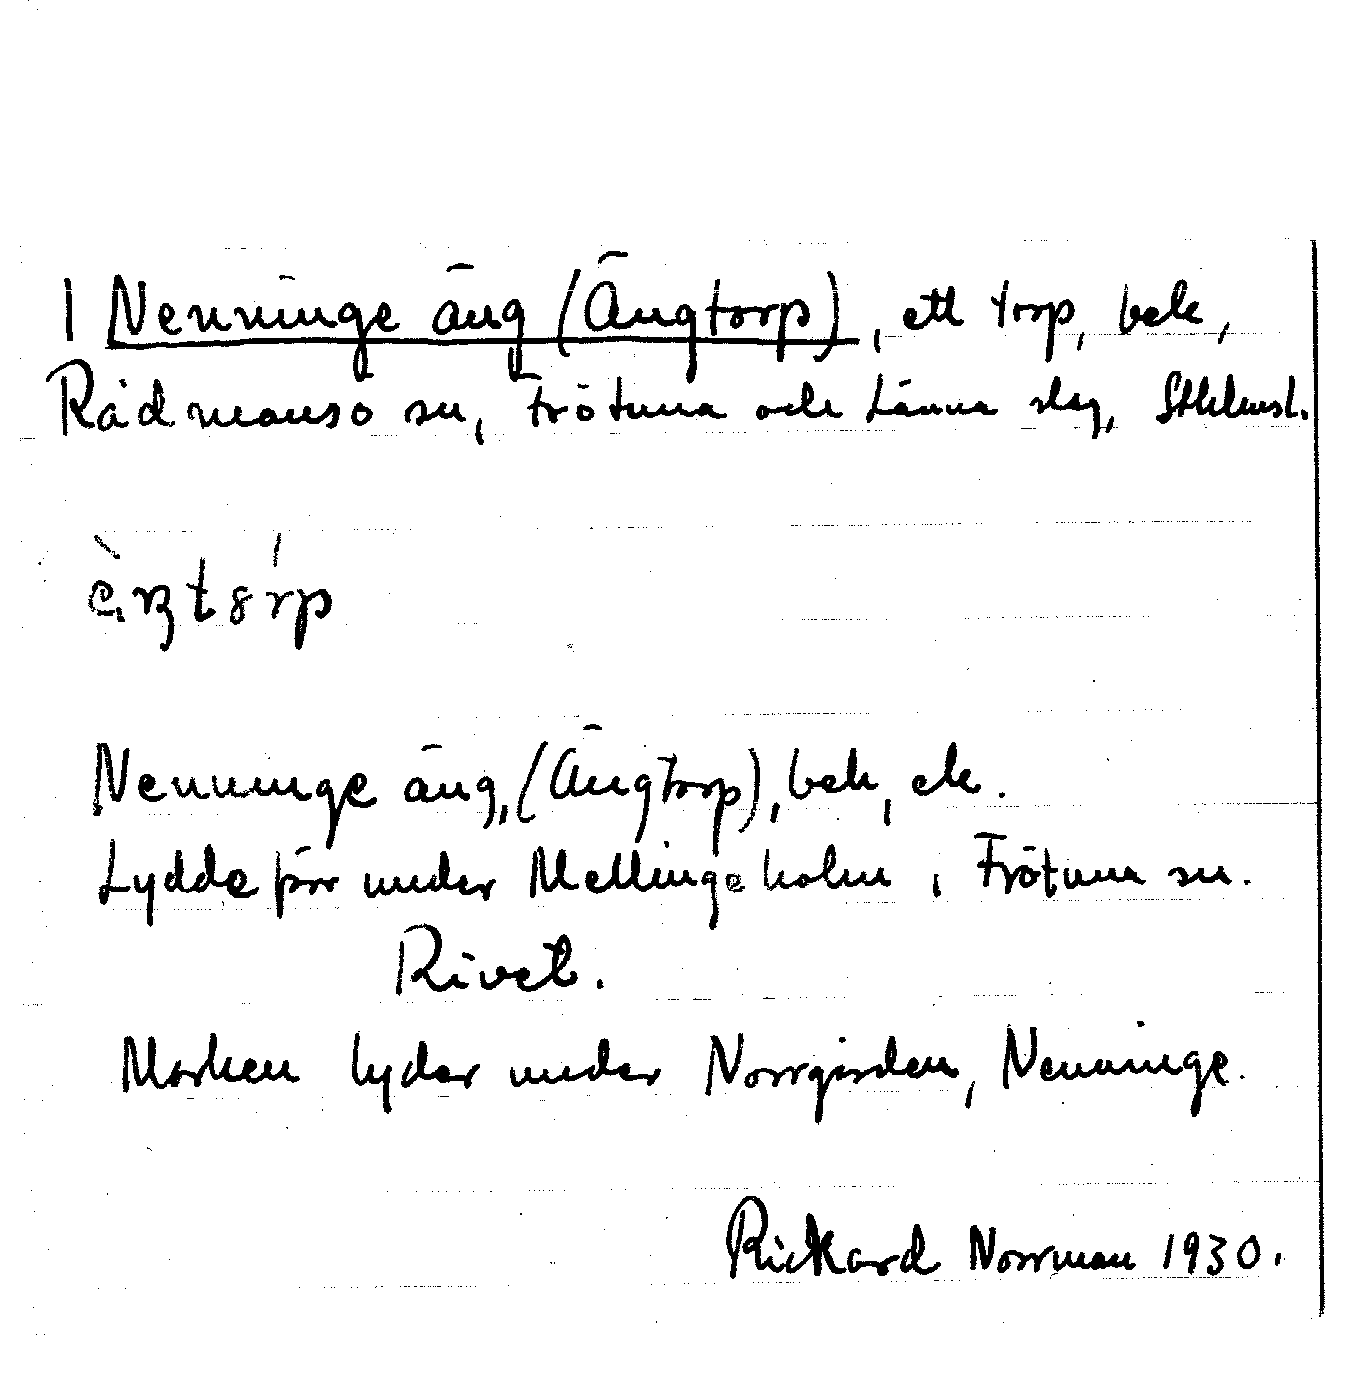 1 Nenninge äng (Ängtorp), ett torp, bek,
Rådmansö sn, Frötuna och Länna slag, Sthlmsl.
Nenninge äng, (Ängtorp), bek, ek.
Lydde förr under Mellingeholm i Frötuna sn.
Rivet.
Marken lyder under Norrgården, Nenninge.
Rickard Norrman 1930.